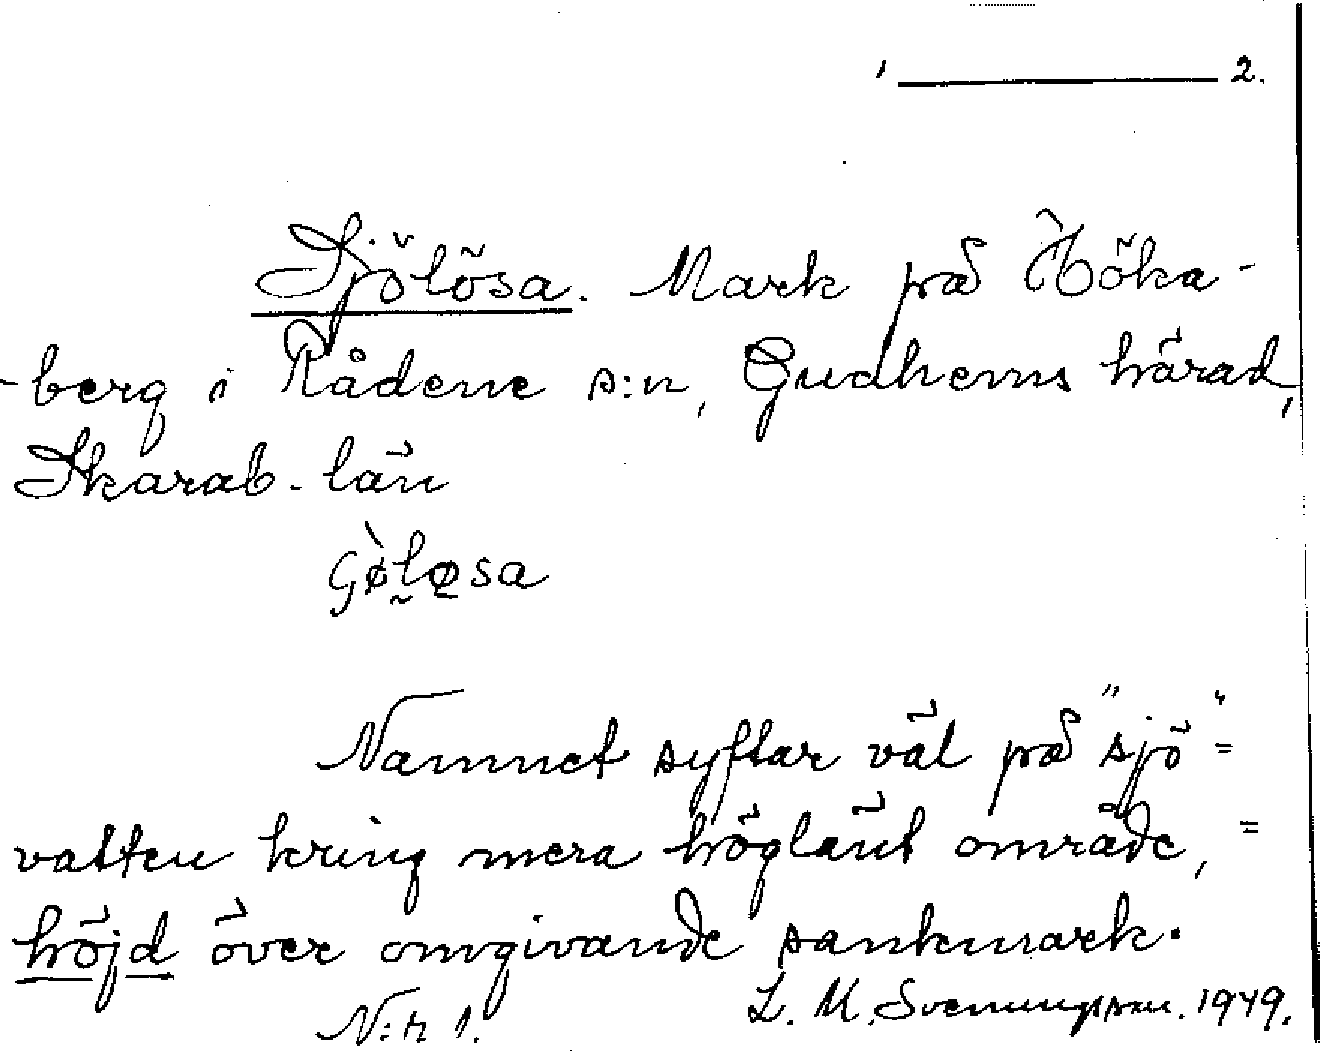 2.
Sjölösa. Mark på Höka-
-berg i Rådene s:n, Gudhems härad,
Skarab. län
Namnet syftar väl på "sjö"=
vatten kring mera höglänt område, =
höjd över omgivande sankmark.
N:r 1. L. M. Svenungsson. 1949.